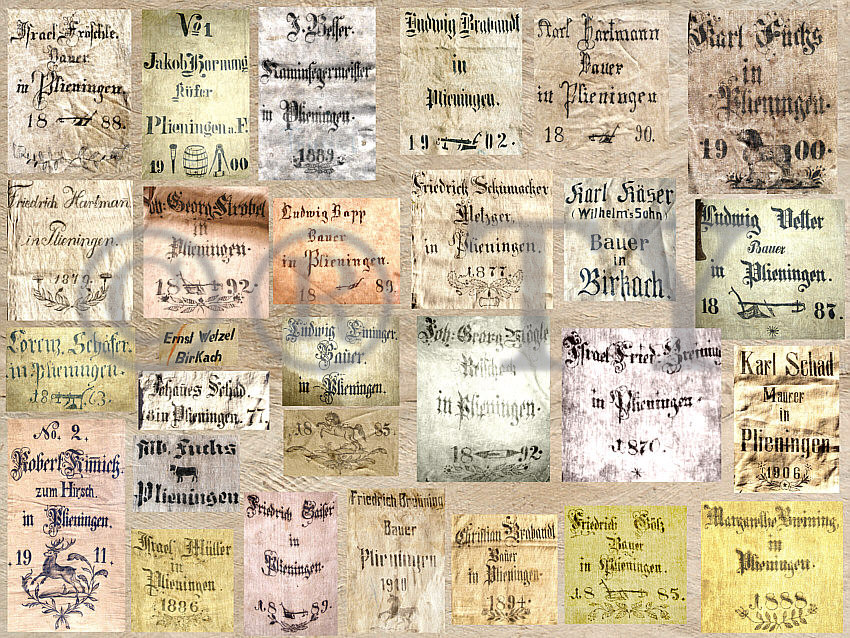 Israel Fröschle.
Bauer
in Plieningen.
18 88.
No 1
Jakob Hornung
Küfer
Plieningen a. F.
19 00
J. Vetter.
Kaminfegermeister
in Plieningen.
1889.
Ludwig Brabandt
in
Plieningen.
19 02.
Karl Hartmann
Bauer
in Plieningen
18 90.
Karl Fuchs
in
Plieningen.
19 00.
Friedrich Hartman
in Plieningen.
1879.
Joh: Georg Strobel
in
Plieningen.
18 92.
Ludwig Rapp
Bauer
in Plieningen.
18 89.
Friedrich Schumacher
Metzger,
in Plieningen.
1877.
Karl Käser
(Wilhelms Sohn)
Bauer
in
Birkach.
Ludwig Vetter
Bauer
in Plieningen.
18 87.
Lorenz Schäfer.
in Plieningen.
18 63.
Ernst Wetzel
Birkach
Johanes Schad.
18 in Plieningen. 77.
Ludwig
Bauer.
in Plieningen.
18 85.
Joh: Georg Nögle
in Plieningen
18 92.
Israel Fried. Breining
in Plieningen.
1870.
Karl Schad
Maurer
in
Plieningen
1906.
No. 2.
Robert Kimich.
zum Hirsch.
in Plieningen.
19 11.
Alb. Fuchs
Plieningen
Israel Müller
in
Plieningen.
1886
Friedrich Gaiser
in
Plieningen.
18 89.
Friedrich Breining
Bauer
Plieningen
1919
Christian Brabandt
Bauer
in Plieningen.
1894.
Friedrich Götz
Bauer
in Plieningen.
18 85.
Margarethe Breining,
in
Plieningen.
1888